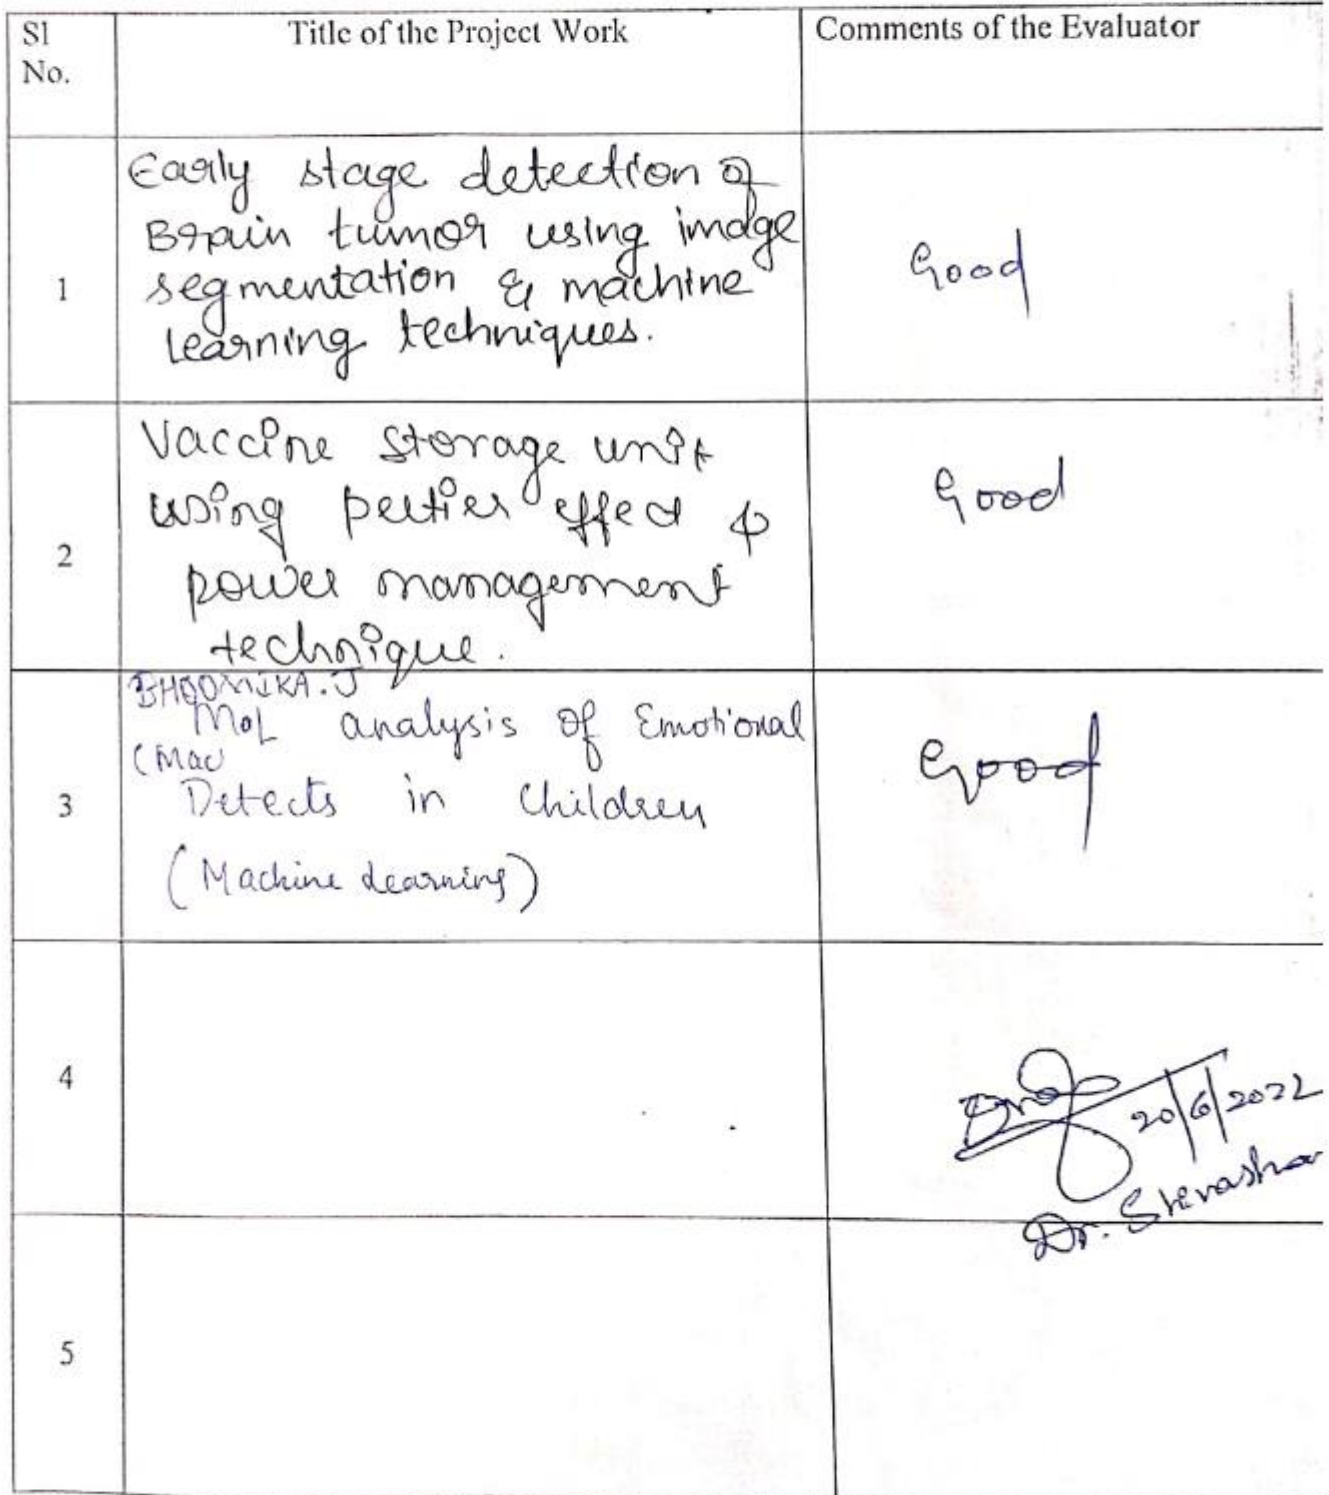 Sl
No.
Title of the Project Work
Comments of the Evaluator
1
Early stage detection of
Brain tumor using image
segmentation & machine
learning techniques.
Good
2
Vaccine storage unit
using peltier effect &
power management
technique.
Good
3
BHOOMIKA.J
analysis of Emotional
(Mac
Detects in Children
(Machine Learning)
Good
4
20/6/2022
Dr.
5